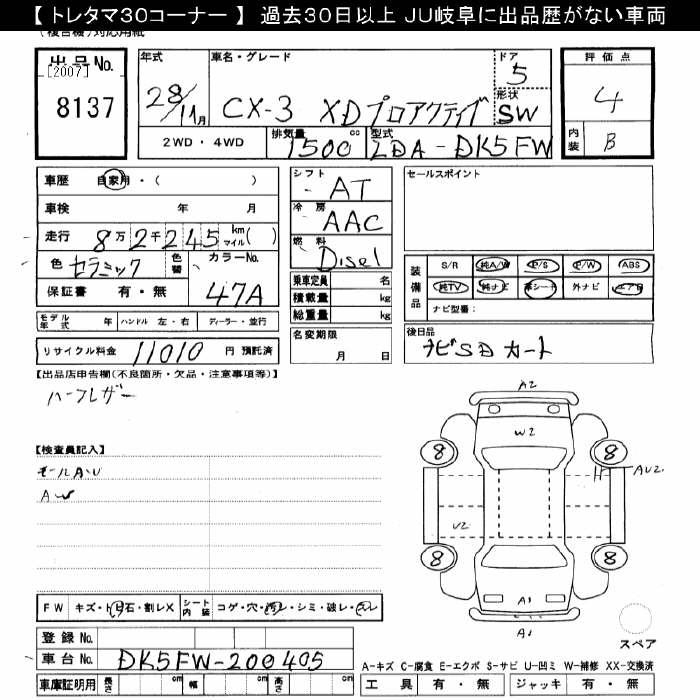 【 トレタマ30コーナー 】 過去30日以上 JU岐阜に出品歴がない車両
(複合機)対応用紙
出品No.
[2007]
8137
年式
28/11月
車名・グレード
CX-3 XDプロアクティブ
ドア
5
形状
SW
評価点
4
内装
B
2WD・4WD
排気量
1500 cc
型式
LDA-DK5FW
車歴 自家用・( )
車検 年 月
走行 8万2千245 km マイル( )
色 セラミック 色替
カラーNo.
47A
保証書 有・無
モデル年式 年 ハンドル 左・右 ディーラー・並行
リサイクル料金 11010 円 預託済
シフト
AT
冷房
AAC
燃料
Disel
乗車定員 名
積載量 kg
総重量 kg
名変期限
月 日
セールスポイント
装備品
S/R 純A/W P/S P/W ABS
純TV 純ナビ 革シート 外ナビ エアB
ナビ型番:
後日品
ナビSDカート
【出品店申告欄(不良箇所・欠品・注意事項等)】
ハーフレザー
【検査員記入】
モールAU
AW
A2
W2
8
8
AU2
U2
8
8
A1
A1
スペア
FW キズ・トビ石・割レX シート内装 コゲ・穴・汚レ・シミ・破レ・スレ
登録No.
車台No. DK5FW-200405
車庫証明用 長さ cm 幅 cm 高さ cm
A−キズ C−腐食 E−エクボ S−サビ U−凹ミ W−補修 XX−交換済
工具 有・無 ジャッキ 有・無